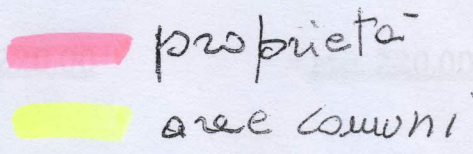 proprietà
aree comuni